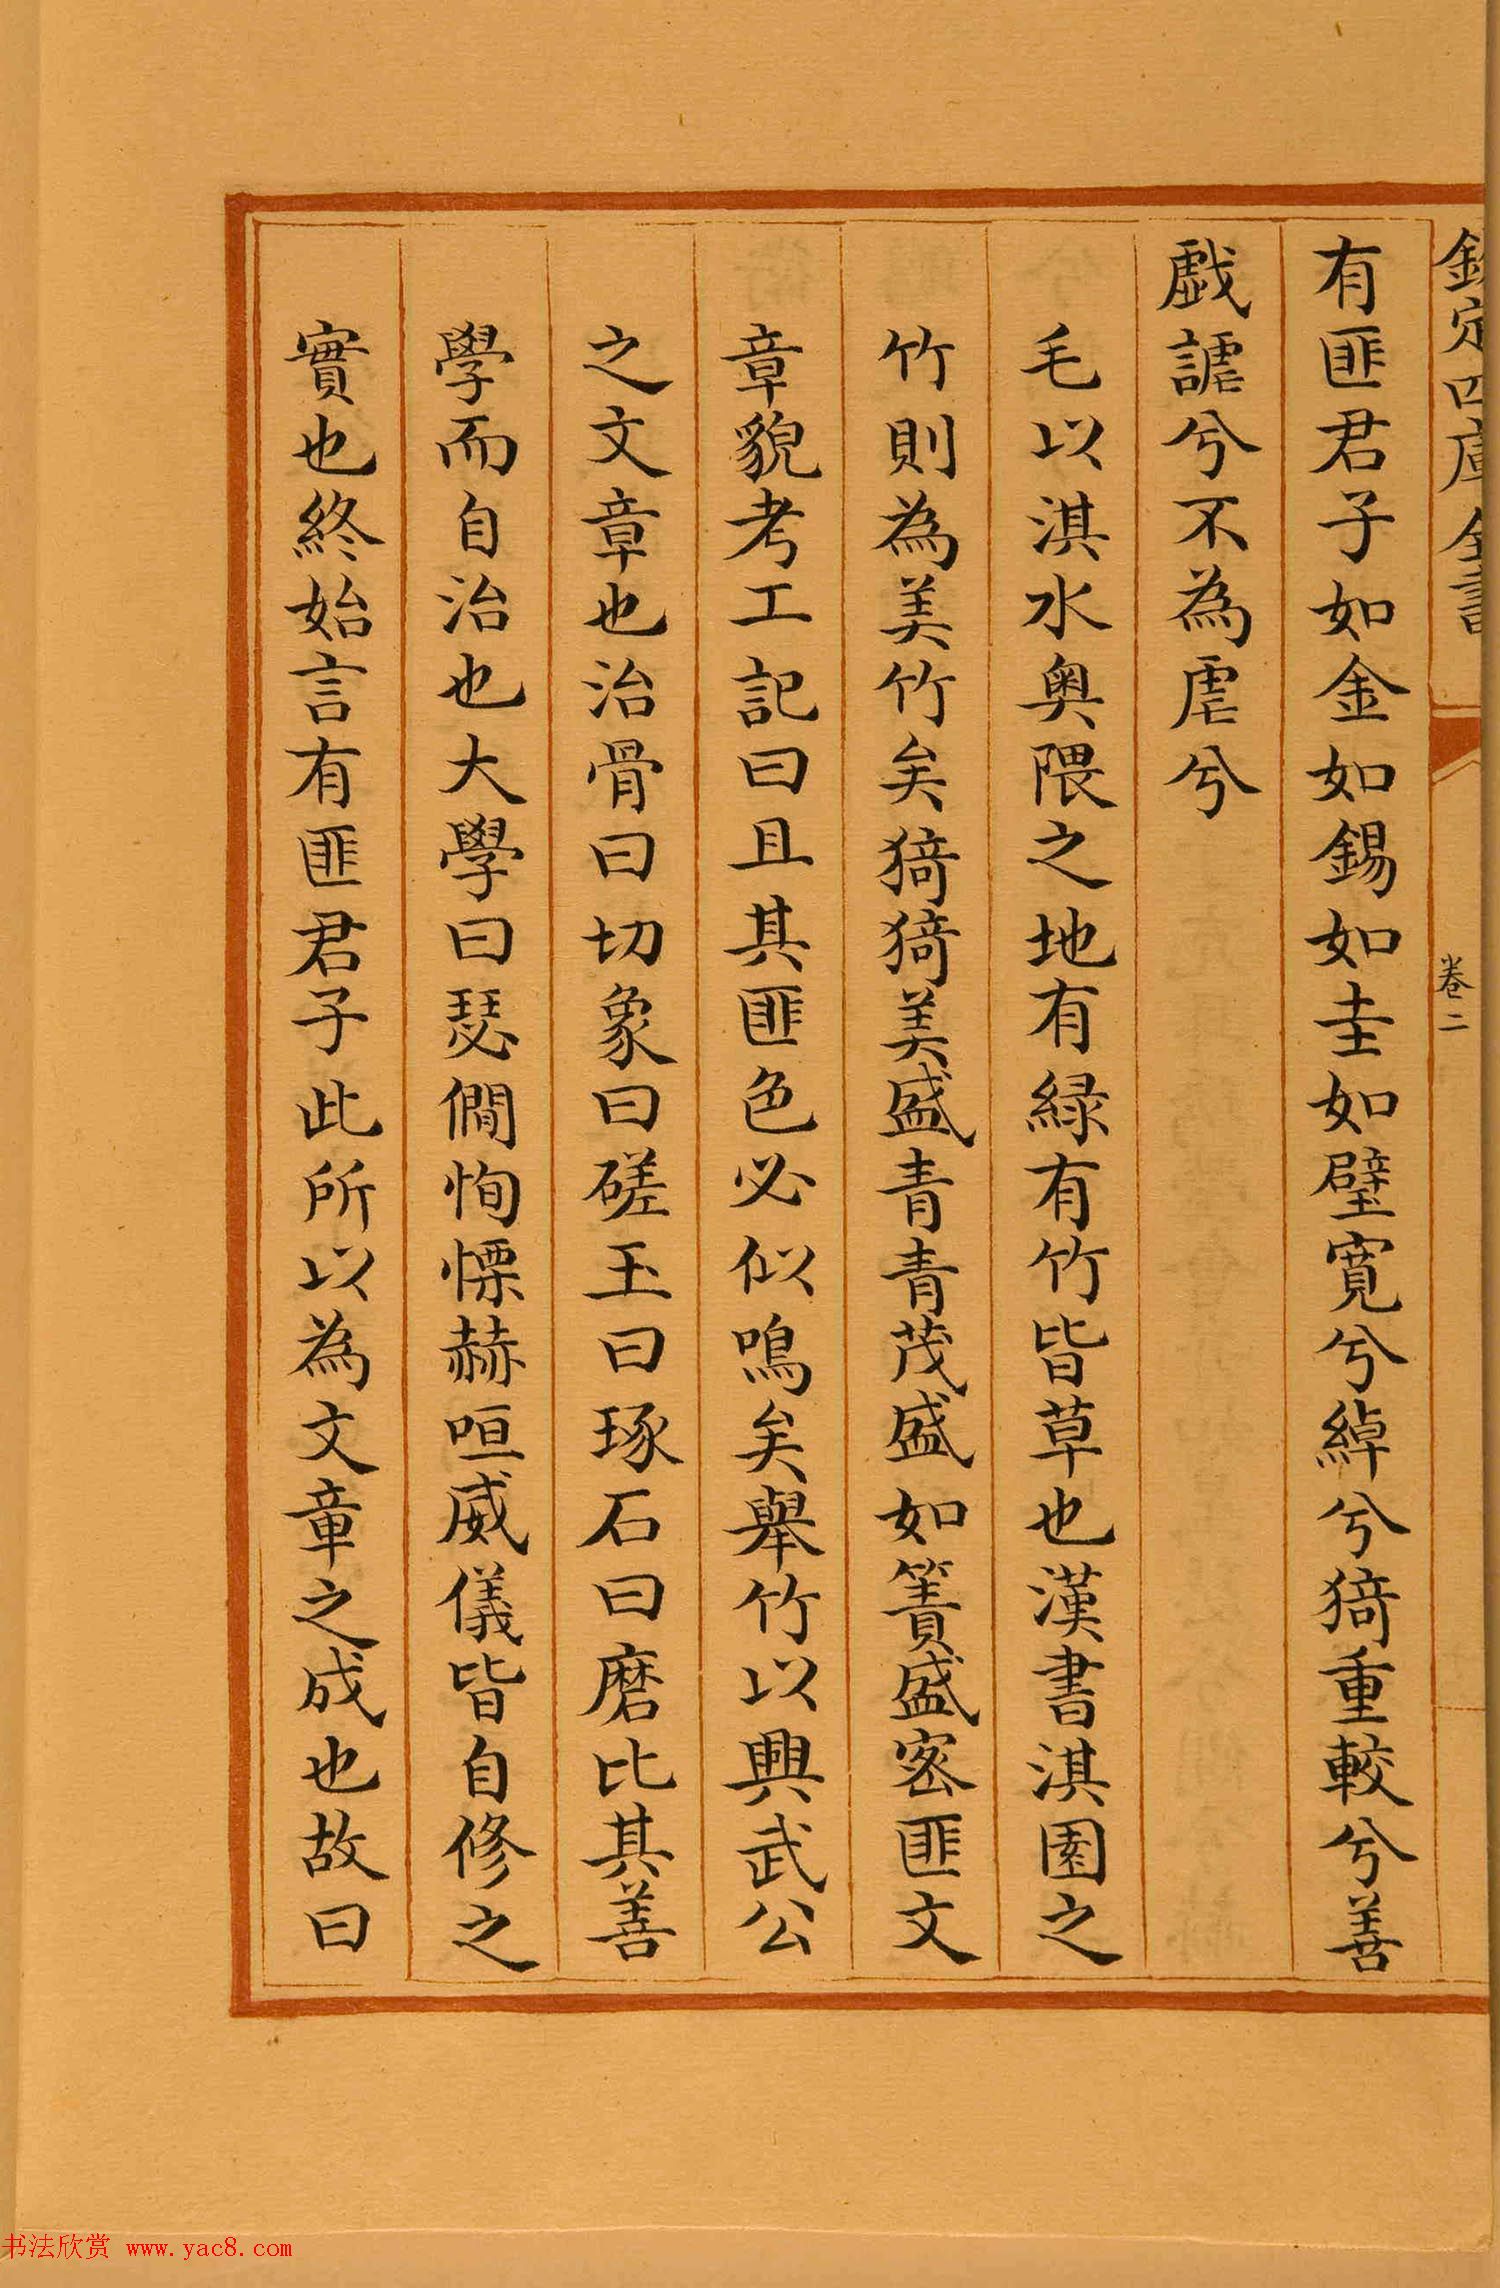 欽定四庫全書
卷二
有匪君子如金如錫如圭如璧寬兮綽兮猗重較兮善
戯謔兮不為虐兮
毛以淇水奥隈之地有緑有竹皆草也漢書淇園之
竹則為美竹矣猗猗美盛青青茂盛如簀盛密匪文
章貌考工記曰且其匪色必似鳴矣舉竹以興武公
之文章也治骨曰切象曰磋玉曰琢石曰磨比其善
學而自治也大學曰瑟僩恂慄赫咺威儀皆自修之
實也終始言有匪君子此所以為文章之成也故曰
书法欣赏 www.yac8.com